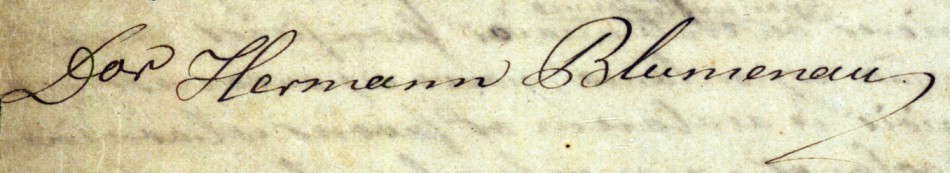 Dor Hermann Blumenau